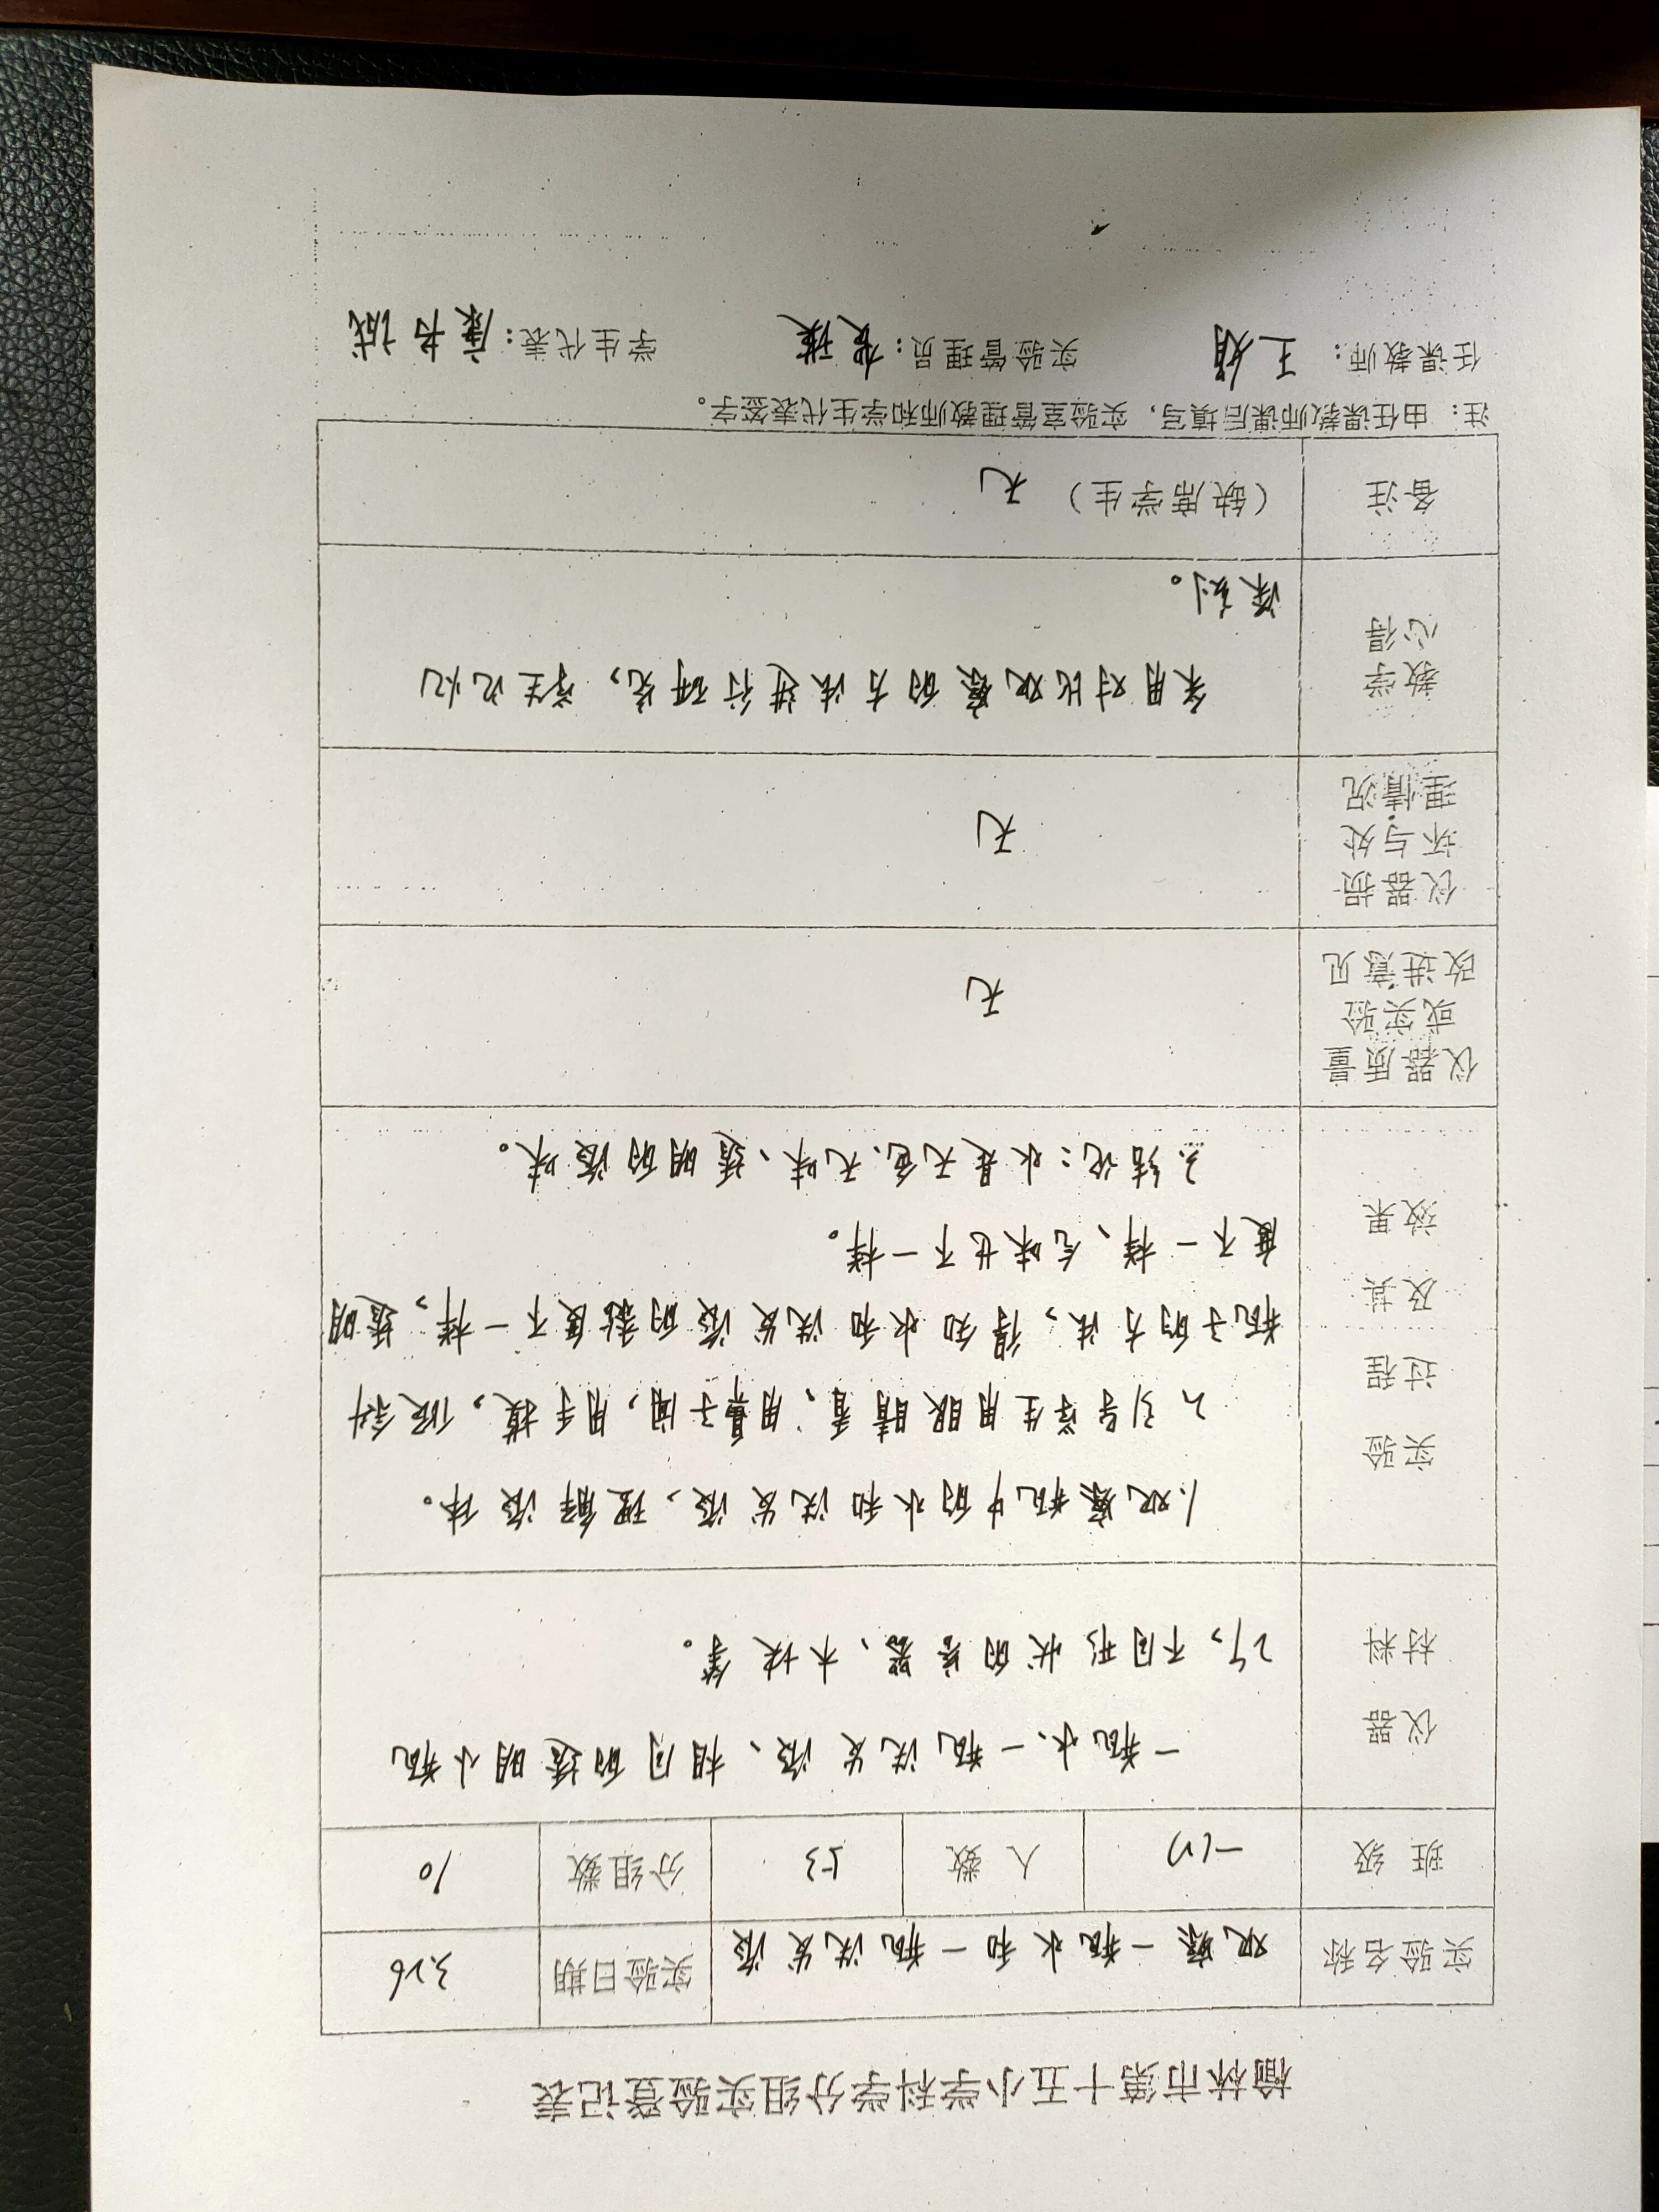 榆林市第十五小学科学分组实验登记表
实验名称 观察一瓶水和一瓶洗发液 实验日期 3.26
班 级 一(1) 人 数 53 分组数 10
仪器 材料
一瓶水、一瓶洗发液、相同的透明小瓶
2个,不同形状的容器、木块等。
实验 过程 及其 效果
1.观察瓶中的水和洗发液,理解液体。
2.引导学生用眼睛看、用鼻子闻,用手摸,倾斜
瓶子的方法,得知水和洗发液的黏度不一样,透明
度不一样、气味也不一样。
3.结论:水是无色、无味、透明的液味。
仪器质量
或实验
改进意见
无
仪器损
坏与处
理情况
无
教学
心得
采用对比观察的方法进行研究,学生记忆
深刻。
备注 (缺席学生) 无
注:由任课教师课后填写,实验室管理教师和学生代表签字。
任课教师:王娟 实验管理员: 学生代表: